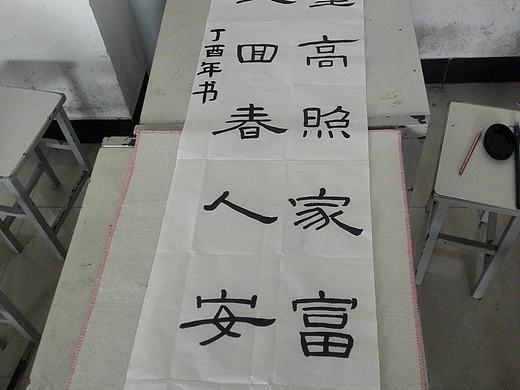 高照家富
回春人安
丁酉年书